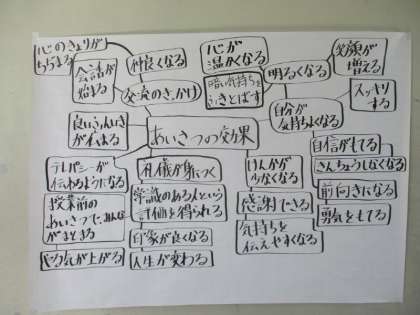 心のきょりが
ちぢまる
会話が
始まる
仲良くなる
交流のきっかけ
心が
温かくなる
暗い気持ちを
ふきとばす
明るくなる
笑顔が
増える
スッキリ
する
自分が
気持ちよくなる
良いふんいき
が伝わる
あいさつの効果
自信がもてる
きんちょうしなくなる
テレパシーが
伝わるようになる
礼儀が身につく
けんかが
少なくなる
前向きになる
授業前の
あいさつで、みんな
がまとまる
常識のある人という
評価を得られる
感謝できる
勇気をもてる
印象が良くなる
気持ちを
伝えやすくなる
やる気が上がる
人生が変わる